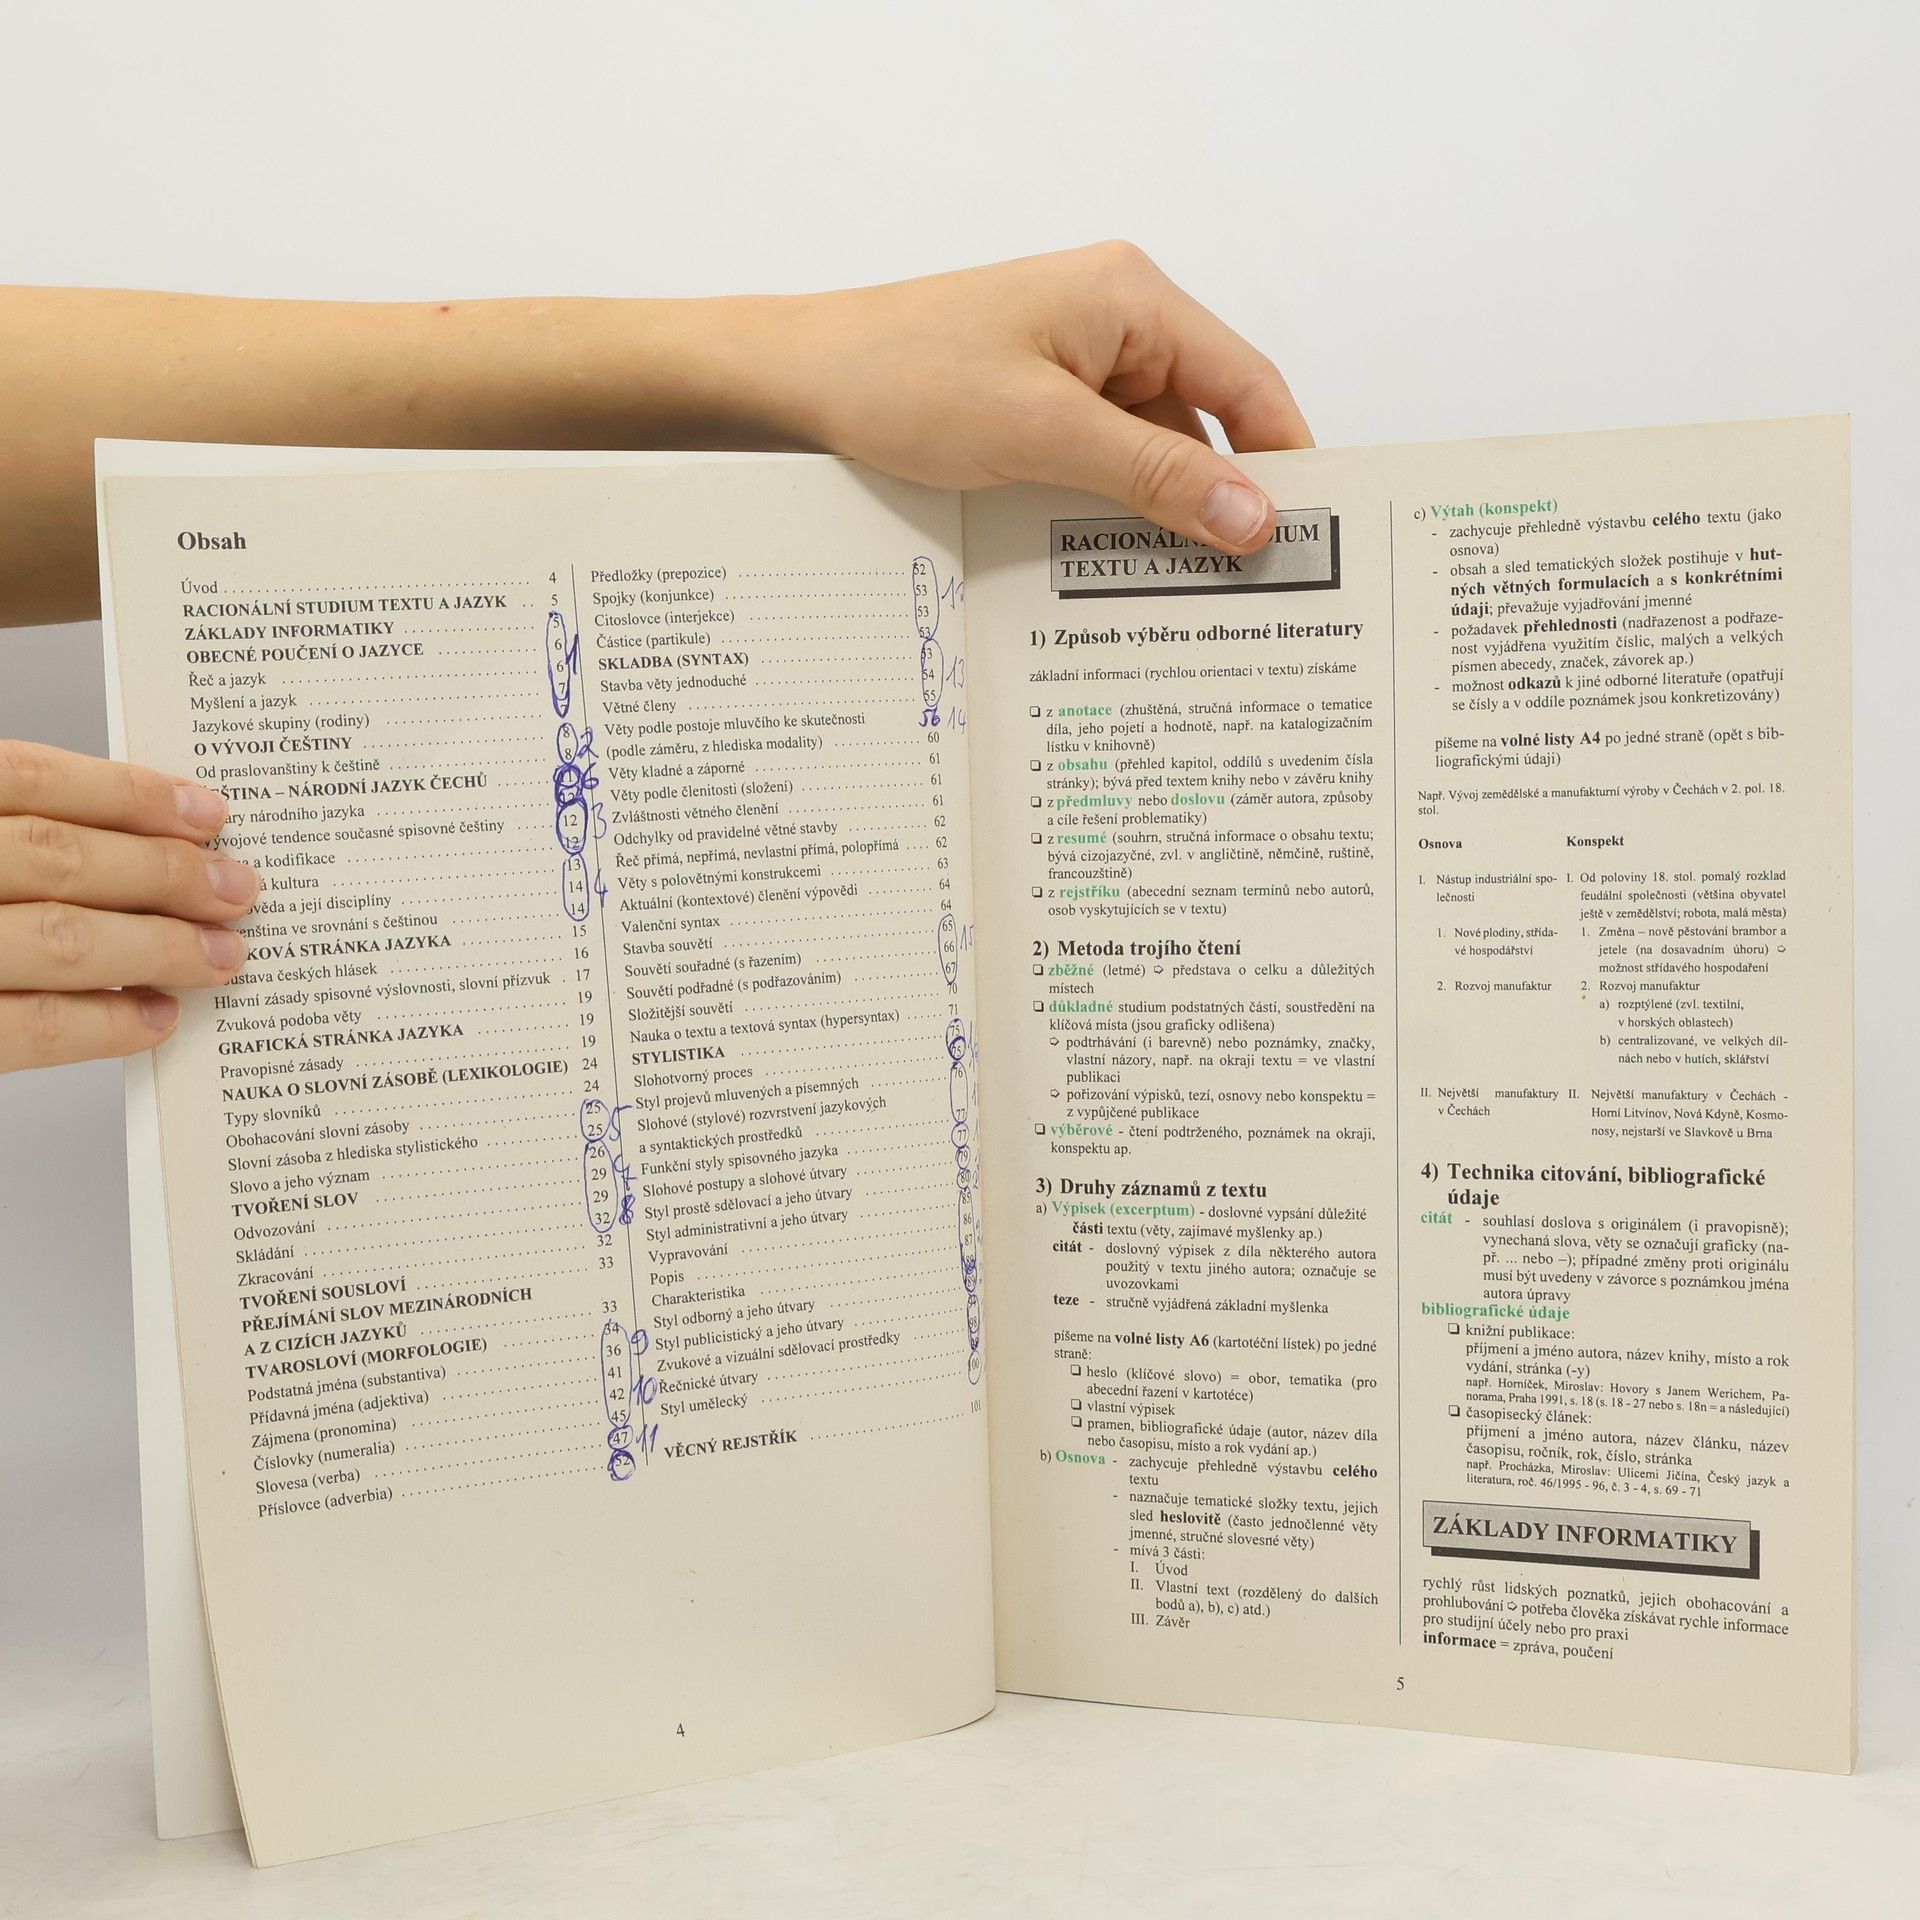 Obsah
Úvod 4
RACIONÁLNÍ STUDIUM TEXTU A JAZYK 5
ZÁKLADY INFORMATIKY 5
OBECNÉ POUČENÍ O JAZYCE 6
Řeč a jazyk 6
Myšlení a jazyk 7
Jazykové skupiny (rodiny) 7
O VÝVOJI ČEŠTINY 8
Od praslovanštiny k češtině 8
ŠTINA – NÁRODNÍ JAZYK ČECHŮ
národního jazyka
ývojové tendence současné spisovné češtiny 12
a kodifikace 12
kultura 13
a její disciplíny 14
ve srovnání s češtinou 14
KOVÁ STRÁNKA JAZYKA 15
ustava českých hlásek 16
Hlavní zásady spisovné výslovnosti, slovní přízvuk 17
Zvuková podoba věty 19
GRAFICKÁ STRÁNKA JAZYKA 19
Pravopisné zásady 19
NAUKA O SLOVNÍ ZÁSOBĚ (LEXIKOLOGIE) 24
Typy slovníků 24
Obohacování slovní zásoby 25
Slovní zásoba z hlediska stylistického 25
Slovo a jeho význam 26
TVOŘENÍ SLOV 29
Odvozování 29
Skládání 32
Zkracování 32
TVOŘENÍ SOUSLOVÍ 33
PŘEJÍMÁNÍ SLOV MEZINÁRODNÍCH
A Z CIZÍCH JAZYKŮ 33
TVAROSLOVÍ (MORFOLOGIE) 34
Podstatná jména (substantiva) 36
Přídavná jména (adjektiva) 41
Zájmena (pronomina) 42
Číslovky (numeralia) 45
Slovesa (verba) 47
Příslovce (adverbia) 52
1
2
6
3
4
5
7
8
9
10
11
Předložky (prepozice) 52
Spojky (konjunkce) 53
Citoslovce (interjekce) 53
Částice (partikule) 53
SKLADBA (SYNTAX) 53
Stavba věty jednoduché 54
Větné členy 55
Věty podle postoje mluvčího ke skutečnosti
(podle záměru, z hlediska modality) 60
Věty kladné a záporné 61
Věty podle členitosti (složení) 61
Zvláštnosti větného členění 61
Odchylky od pravidelné větné stavby 62
Řeč přímá, nepřímá, nevlastní přímá, polopřímá 62
Věty s polovětnými konstrukcemi 63
Aktuální (kontextové) členění výpovědi 64
Valenční syntax 64
Stavba souvětí 65
Souvětí souřadné (s řazením) 66
Souvětí podřadné (s podřazováním) 67
Složitější souvětí 70
Nauka o textu a textová syntax (hypersyntax) 71
STYLISTIKA 75
Slohotvorný proces 75
Styl projevů mluvených a písemných 76
Slohové (stylové) rozvrstvení jazykových
a syntaktických prostředků 77
Funkční styly spisovného jazyka 77
Slohové postupy a slohové útvary 79
Styl prostě sdělovací a jeho útvary 80
Styl administrativní a jeho útvary
Vypravování 86
Popis 87
Charakteristika
Styl odborný a jeho útvary
Styl publicistický a jeho útvary
Zvukové a vizuální sdělovací prostředky
Řečnické útvary
Styl umělecký 100
VĚCNÝ REJSTŘÍK 101
13
56 14
15
4
RACIONÁLN IUM
TEXTU A JAZYK
1) Způsob výběru odborné literatury
základní informaci (rychlou orientaci v textu) získáme
❏ z anotace (zhuštěná, stručná informace o tematice
díla, jeho pojetí a hodnotě, např. na katalogizačním
lístku v knihovně)
❏ z obsahu (přehled kapitol, oddílů s uvedením čísla
stránky); bývá před textem knihy nebo v závěru knihy
❏ z předmluvy nebo doslovu (záměr autora, způsoby
a cíle řešení problematiky)
❏ z resumé (souhrn, stručná informace o obsahu textu;
bývá cizojazyčné, zvl. v angličtině, němčině, ruštině,
francouzštině)
❏ z rejstříku (abecední seznam termínů nebo autorů,
osob vyskytujících se v textu)
2) Metoda trojího čtení
❏ zběžné (letmé) ➪ představa o celku a důležitých
místech
❏ důkladné studium podstatných částí, soustředění na
klíčová místa (jsou graficky odlišena)
➪ podtrhávání (i barevně) nebo poznámky, značky,
vlastní názory, např. na okraji textu = ve vlastní
publikaci
➪ pořizování výpisků, tezí, osnovy nebo konspektu =
z vypůjčené publikace
❏ výběrové - čtení podtrženého, poznámek na okraji,
konspektu ap.
3) Druhy záznamů z textu
a) Výpisek (excerptum) - doslovné vypsání důležité
části textu (věty, zajímavé myšlenky ap.)
citát - doslovný výpisek z díla některého autora
použitý v textu jiného autora; označuje se
uvozovkami
teze - stručně vyjádřená základní myšlenka
píšeme na volné listy A6 (kartotéční lístek) po jedné
straně:
❏ heslo (klíčové slovo) = obor, tematika (pro
abecední řazení v kartotéce)
❏ vlastní výpisek
❏ pramen, bibliografické údaje (autor, název díla
nebo časopisu, místo a rok vydání ap.)
b) Osnova - zachycuje přehledně výstavbu celého
textu
- naznačuje tematické složky textu, jejich
sled heslovitě (často jednočlenné věty
jmenné, stručné slovesné věty)
- mívá 3 části:
I. Úvod
II. Vlastní text (rozdělený do dalších
bodů a), b), c) atd.)
III. Závěr
c) Výtah (konspekt)
- zachycuje přehledně výstavbu celého textu (jako
osnova)
- obsah a sled tematických složek postihuje v hut-
ných větných formulacích a s konkrétními
údaji; převažuje vyjadřování jmenné
- požadavek přehlednosti (nadřazenost a podřaze-
nost vyjádřena využitím číslic, malých a velkých
písmen abecedy, značek, závorek ap.)
- možnost odkazů k jiné odborné literatuře (opatřují
se čísly a v oddíle poznámek jsou konkretizovány)
píšeme na volné listy A4 po jedné straně (opět s bib-
liografickými údaji)
Např. Vývoj zemědělské a manufakturní výroby v Čechách v 2. pol. 18.
stol.
Osnova Konspekt
I. Nástup industriální spo- I. Od poloviny 18. stol. pomalý rozklad
lečnosti feudální společnosti (většina obyvatel
ještě v zemědělství; robota, malá města)
1. Nové plodiny, střída- 1. Změna – nově pěstování brambor a
vé hospodářství jetele (na dosavadním úhoru) ➪
možnost střídavého hospodaření
2. Rozvoj manufaktur 2. Rozvoj manufaktur
a) rozptýlené (zvl. textilní,
v horských oblastech)
b) centralizované, ve velkých díl-
nách nebo v hutích, sklářství
II. Největší manufaktury II. Největší manufaktury v Čechách -
v Čechách Horní Litvínov, Nová Kdyně, Kosmo-
nosy, nejstarší ve Slavkově u Brna
4) Technika citování, bibliografické
údaje
citát - souhlasí doslova s originálem (i pravopisně);
vynechaná slova, věty se označují graficky (na-
př. ... nebo –); případné změny proti originálu
musí být uvedeny v závorce s poznámkou jména
autora úpravy
bibliografické údaje
❏ knižní publikace:
příjmení a jméno autora, název knihy, místo a rok
vydání, stránka (-y)
např. Horníček, Miroslav: Hovory s Janem Werichem, Pa-
norama, Praha 1991, s. 18 (s. 18 - 27 nebo s. 18n = a následující)
❏ časopisecký článek:
příjmení a jméno autora, název článku, název
časopisu, ročník, rok, číslo, stránka
např. Procházka, Miroslav: Ulicemi Jičína, Český jazyk a
literatura, roč. 46/1995 - 96, č. 3 - 4, s. 69 - 71
ZÁKLADY INFORMATIKY
rychlý růst lidských poznatků, jejich obohacování a
prohlubování ➪ potřeba člověka získávat rychle informace
pro studijní účely nebo pro praxi
informace = zpráva, poučení
5